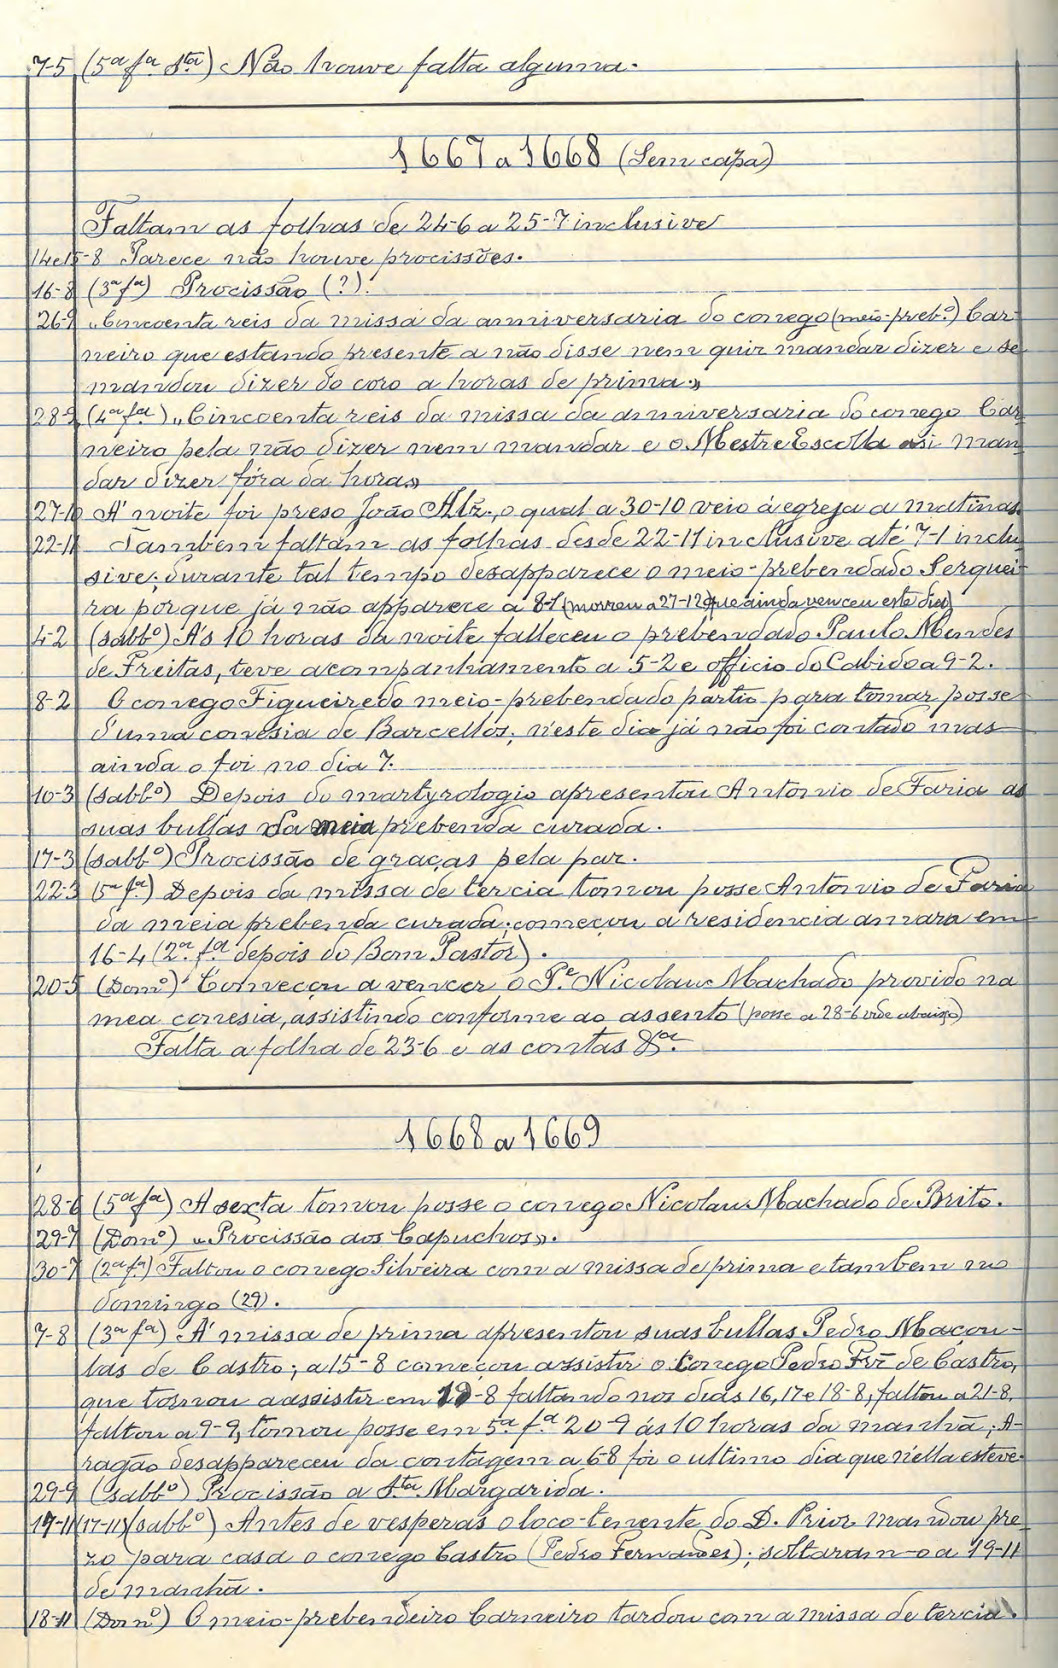 7-5 (5ª fª Stª) Não houve falta alguma.
1667 a 1668 (Sem capa)
Faltam as folhas de 24-6 a 25-7 inclusive
14 e 15-8 Parece não houve procissões.
16-8 (3ª fª) Procissão (?).
26-9 "Cincoenta reis da missa da anniversaria do conego (meio-preb.º) Car-
neiro que estando presente a não disse nem quiz mandar dizer e se
mandou dizer do coro a horas de prima."
28-9 (4ª fª) "Cincoenta reis da missa da anniversaria do conego Car-
neiro pela não dizer nem mandar e o Mestre Escolla a si man-
dar dizer fóra da horas"
27-10 Á noite foi preso João Alz., o qual a 30-10 veio á egreja a matinas
22-11 Tambem faltam as folhas desde 22-11 inclusive até 7-1 inclu-
sive; durante tal tempo desapparece o meio-prebendado Serquei-
ra porque já não apparece a 8-1 (morreu a 27-12 que ainda venceu este dia)
4-2 (sabb.º) Ás 10 horas da noite falleceu o prebendado Paulo Mendes
de Freitas, teve acompanhamento a 5-2 e officio do Cabido a 9-2.
8-2 O conego Figueiredo meio-prebendado partio para tomar posse
d'uma conesia de Barcellos; n'este dia já não foi contado mas
ainda o foi no dia 7.
10-3 (sabb.º) Depois do martyrologio apresentou Antonio de Faria as
suas bullas da meia prebenda curada.
17-3 (sabb.º) Procissão de graças pela paz.
22-3 (5ª fª) Depois da missa de tercia tomou posse Antonio de Faria
da meia prebenda curada; começou a residencia amara em
16-4 (2.ª f.ª depois do Bom Pastor).
20-5 (Domº) Começou a vencer o P.e Nicolau Machado provido na
mea conesia, assistindo conforme ao assento (posse a 28-6 vide abaixo)
Falta a folha de 23-6 e as contas &ª.
1668 a 1669
28-6 (5ª fª) A sexta tomou posse o conego Nicolau Machado de Brito.
29-7 (Domº) "Procissão aos Capuchos".
30-7 (2ª fª) Faltou o conego Silveira com a missa de prima e tambem no
domingo (29).
7-8 (3ª fª) Á missa de prima apresentou suas bullas Pedro Maçou-
las de Castro; a 15-8 começou assistir o Conego Pedro Frz de Castro,
que tornou a assistir em 19-8 faltando nos dias 16, 17 e 18-8, faltou a 21-8,
faltou a 9-9, tomou posse em 5ª fª 20-9 ás 10 horas da manhã; A-
ragão desappareceu da contagem a 6-8 foi o ultimo dia que n'ella esteve.
29-9 (sabb.º) Procissão a Stª Margarida.
17-11 (17-11) (sabb.º) Antes de vesperas o loco-tenente do D. Prior mandou pre-
zo para casa o conego Castro (Pedro Fernandes); soltaram-o a 19-11
de manhã.
18-11 (Domº) O meio-prebendeiro Carneiro tardou com a missa de tercia.